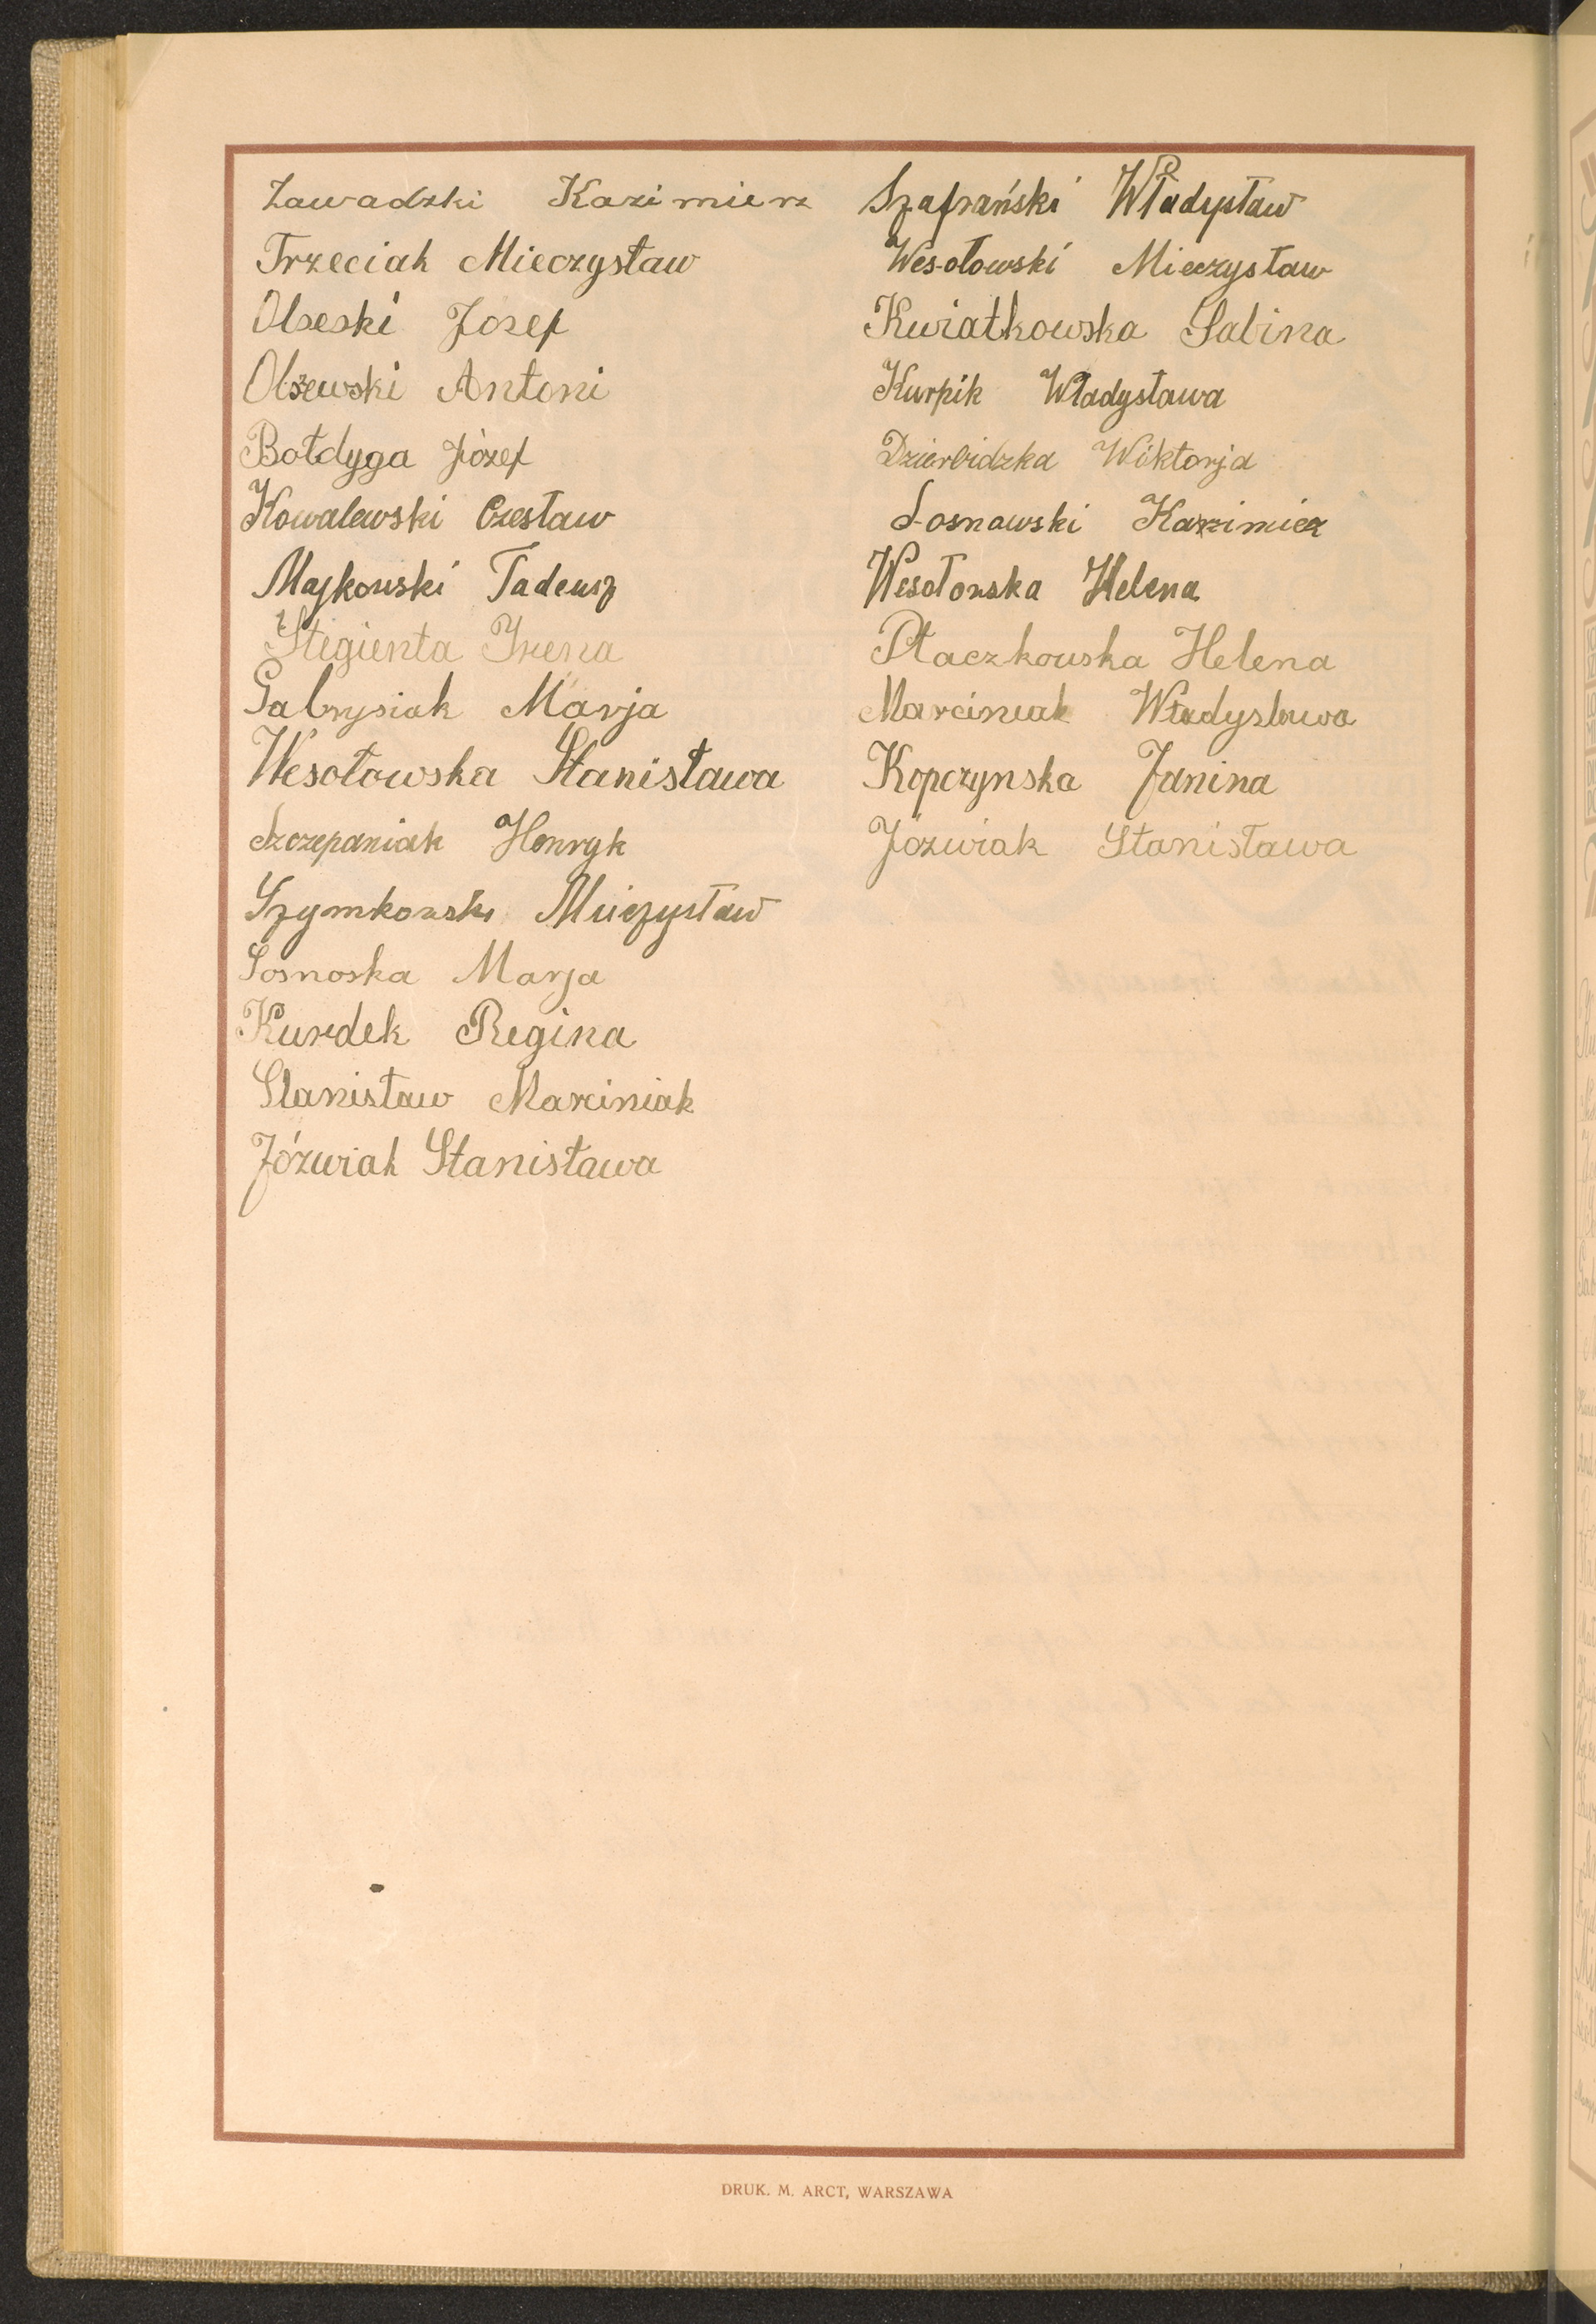 Zawadzki Kazimierz
Trzeciak Mieczysław
Olseski Józef
Olszewski Antoni
Bołdyga Józef
Kowalewski Czesław
Majkowski Tadeusz
Stegienta Irena
Gabrysiak Marja
Wesołowska Stanisława
Szczepaniak Henryk
Szymkowski Mieczysław
Sosnoska Marja
Kurdek Regina
Stanisław Marciniak
Józwiak Stanisława
Szafrański Władysław
Wesołowski Mieczysław
Kwiatkowska Sabina
Kurpik Władysława
Dzierbidzka Wiktorja
Sosnawski Kazimierz
Wesołowska Helena
Płaczkowska Helena
Marciniak Władysława
Kopczynska Janina
Józwiak Stanisława
DRUK. M. ARCT, WARSZAWA